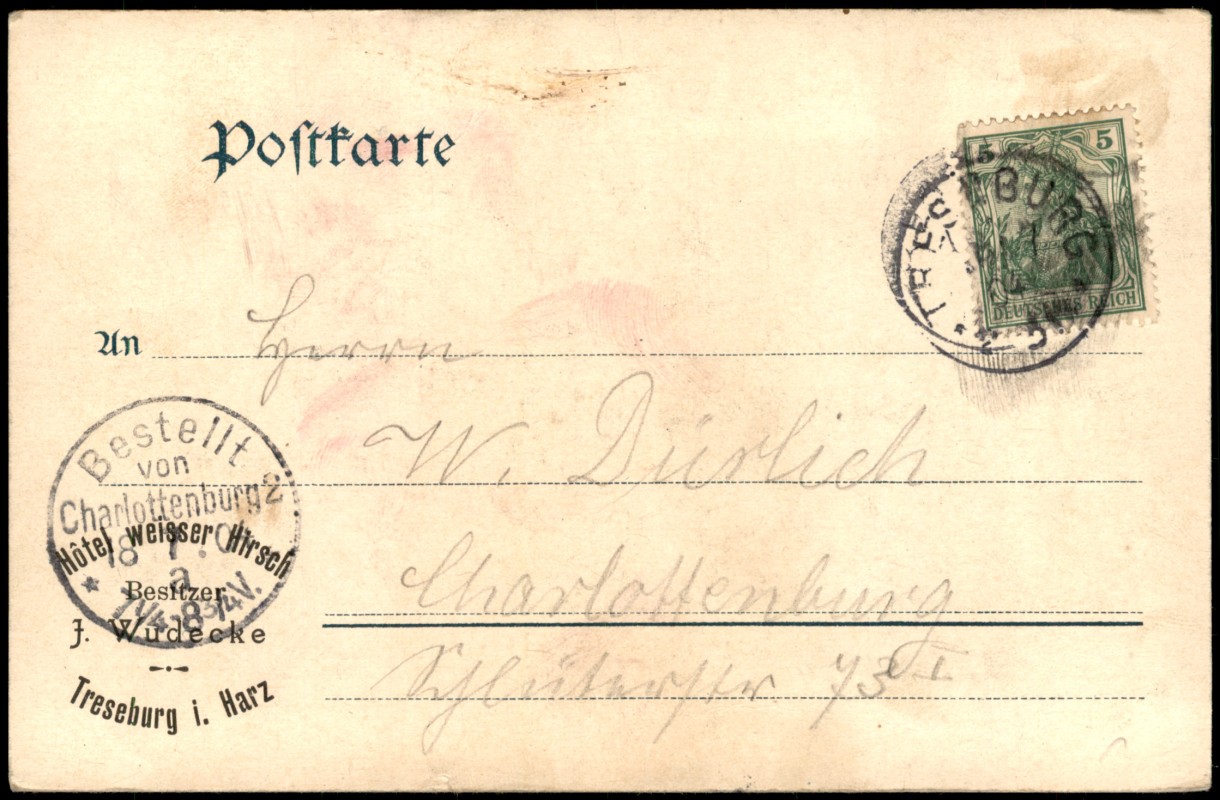 Postkarte
5 5
DEUTSCHES REICH
TRESEBURG
An Herrn
W. Dürlich
Charlottenburg
Schlüterstr 73 I
Bestellt
von
Charlottenburg 2
18 7.
7¼-8¾V.
Hôtel weisser Hirsch
Besitzer
J. Wudecke
Treseburg i. Harz